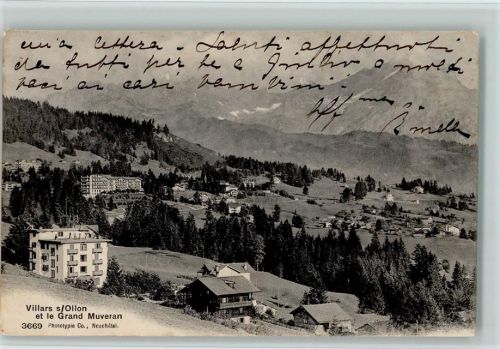 una lettera. Saluti affettuosi
da tutti per te a Emilio a molti
baci ai cari bambini.
aff ma
Villars s/Ollon
et le Grand Muveran
3669 Phototypie Co., Neuchâtel.